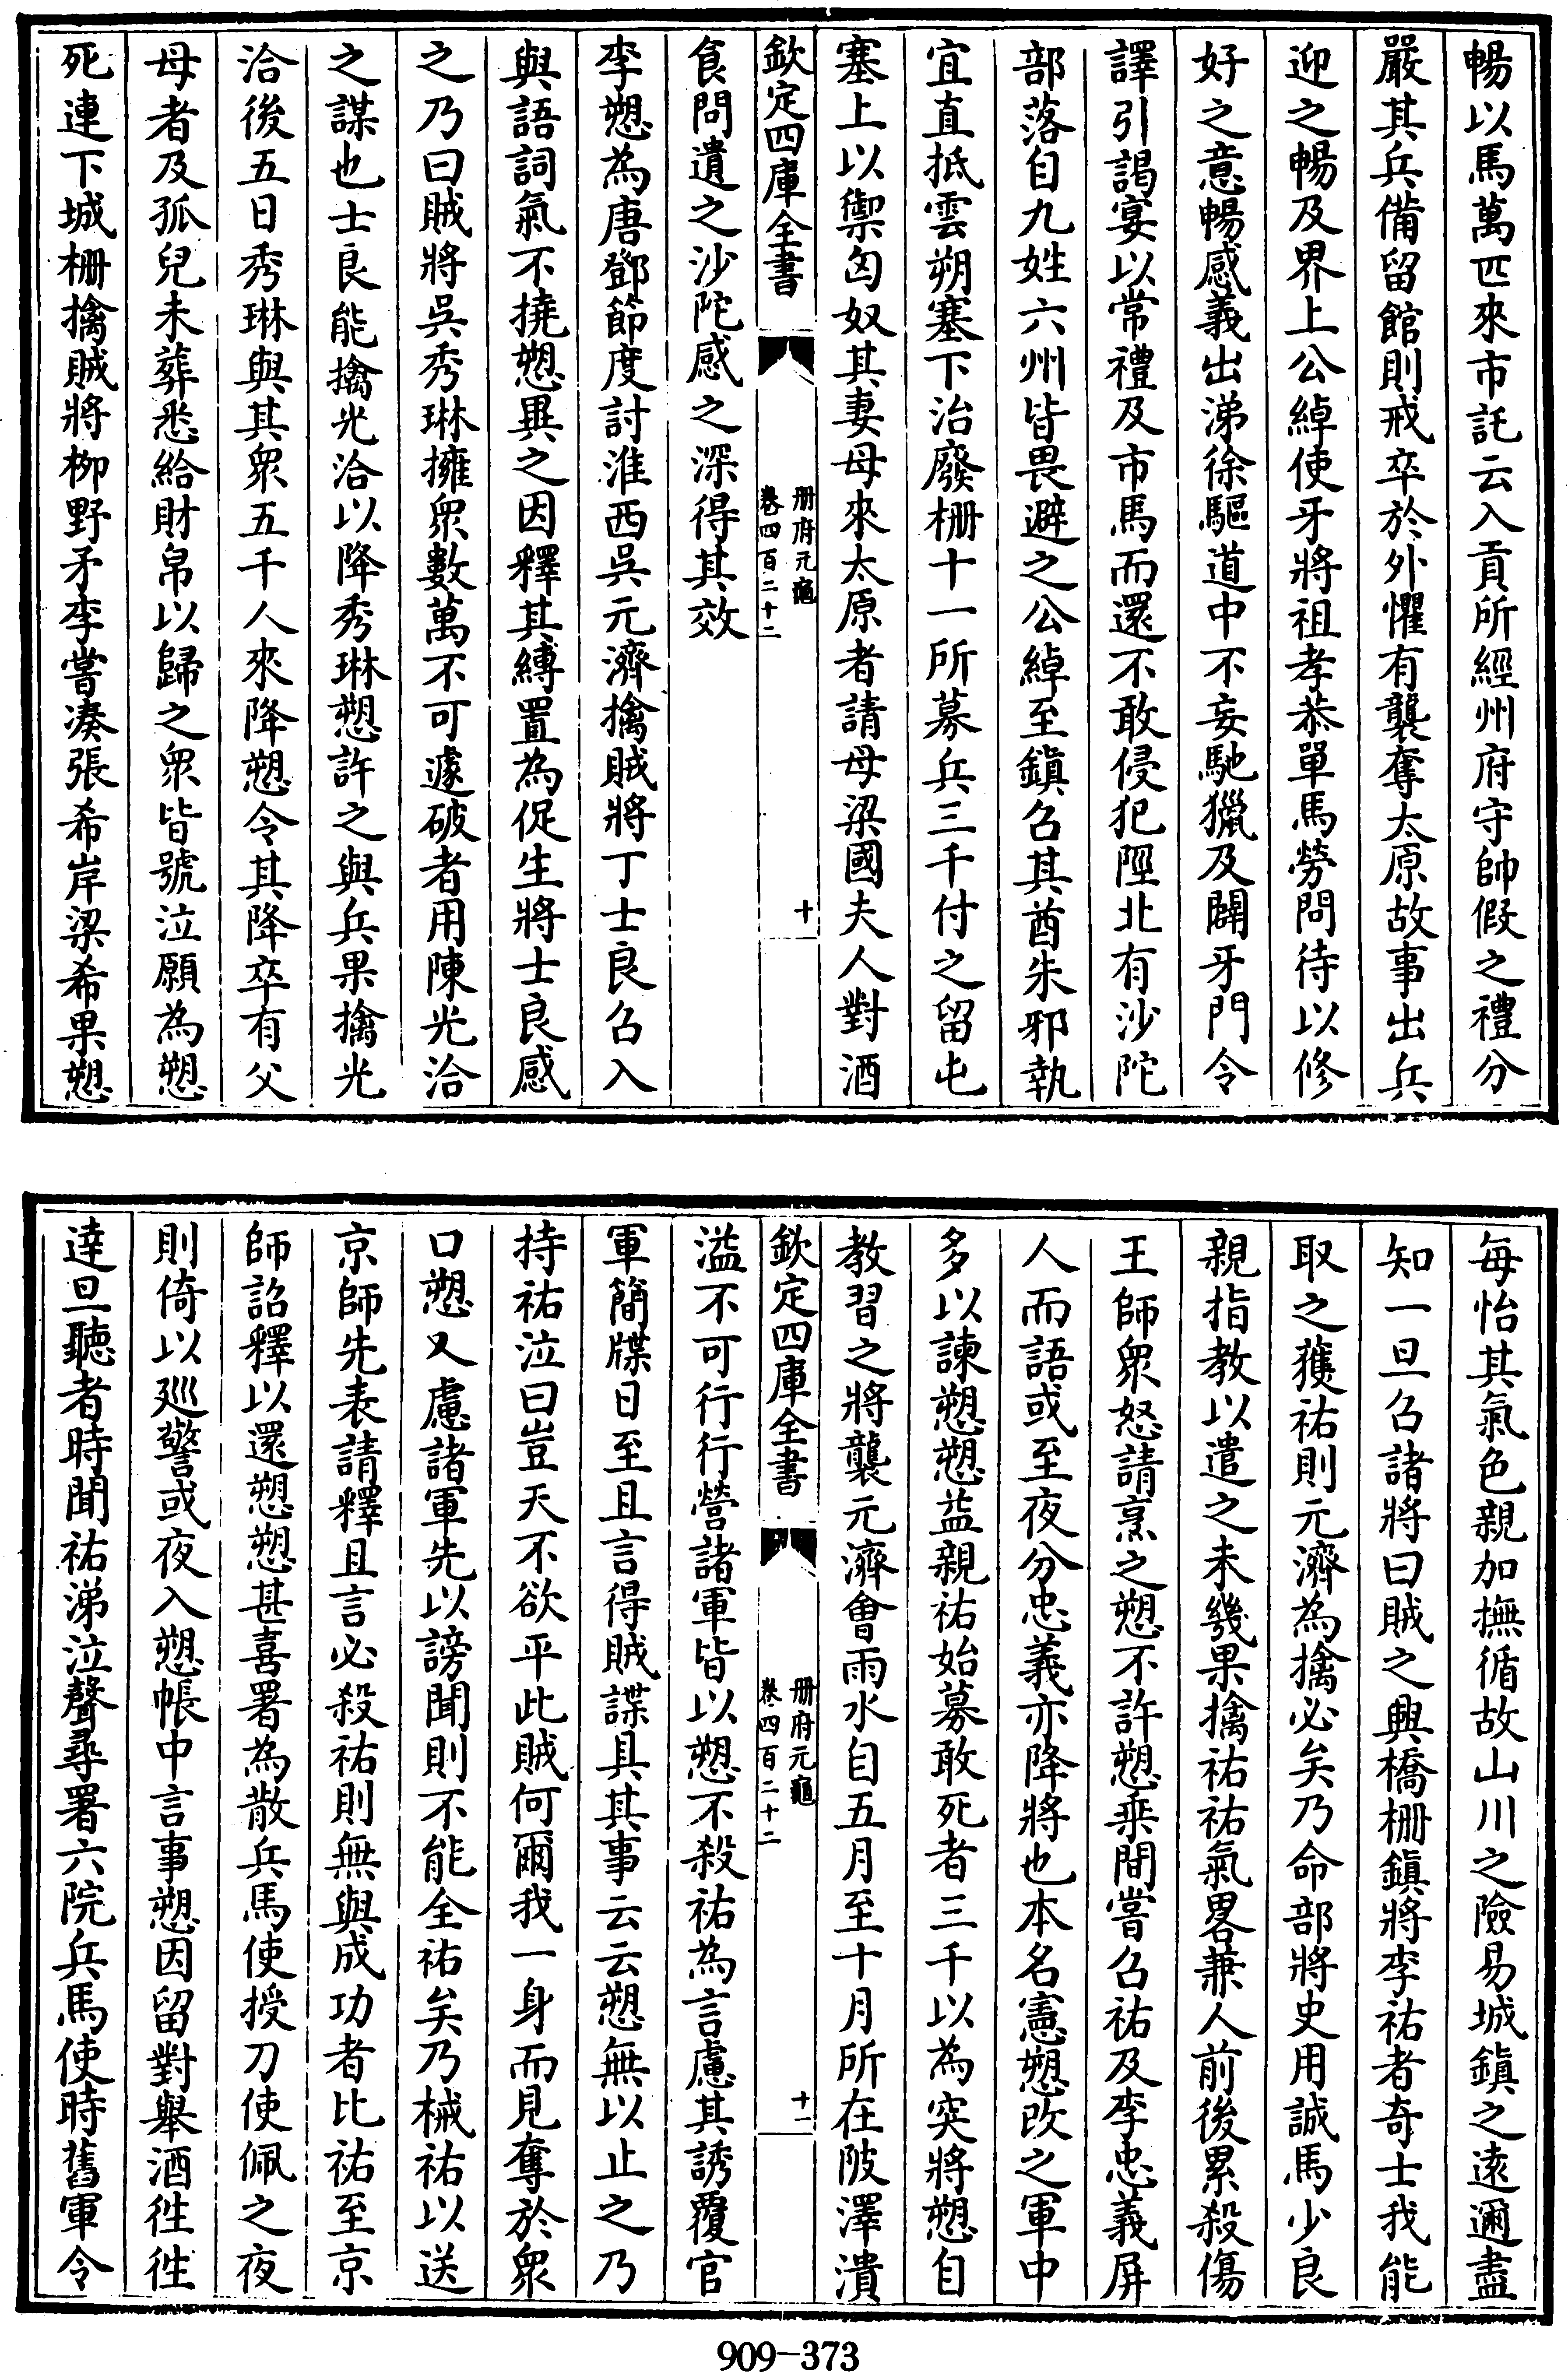 暢以馬萬匹來市託云入貢所經州府守帥假之禮分
嚴其兵備留館則戒卒於外懼有襲奪太原故事出兵
迎之暢及界上公綽使牙將祖孝恭單馬勞問待以修
好之意暢感義出涕徐驅道中不妄馳獵及闢牙門令
譯引謁宴以常禮及市馬而還不敢侵犯陘北有沙陀
部落自九姓六州皆畏避之公綽至鎮召其酋朱邪執
宜直抵雲朔塞下治廢柵十一所募兵三千付之留屯
塞上以禦匈奴其妻母來太原者請母梁國夫人對酒
欽定四庫全書
冊府元龜
卷四百二十二
十
食問遺之沙陀感之深得其效
李愬為唐鄧節度討淮西吳元濟擒賊將丁士良召入
與語詞氣不撓愬異之因釋其縛置為促生將士良感
之乃曰賊將吳秀琳擁衆數萬不可遽破者用陳光洽
之謀也士良能擒光洽以降秀琳愬許之與兵果擒光
洽後五日秀琳與其衆五千人來降愬令其降卒有父
母者及孤兒未葬悉給財帛以歸之衆皆號泣願為愬
死連下城柵擒賊將柳野矛李嘗湊張希岸梁希果愬
每怡其氣色親加撫循故山川之險易城鎮之遠邇盡
知一旦召諸將曰賊之興橋柵鎮將李祐者奇士我能
取之獲祐則元濟為擒必矣乃命部將史用誠馬少良
親指教以遣之未幾果擒祐祐氣畧兼人前後累殺傷
王師衆怒請烹之愬不許愬乘間嘗召祐及李忠義屏
人而語或至夜分忠義亦降將也本名憲愬改之軍中
多以諫愬愬益親祐始募敢死者三千以為突將愬自
教習之將襲元濟會雨水自五月至十月所在陂澤潰
欽定四庫全書
冊府元龜
卷四百二十二
十一
溢不可行行營諸軍皆以愬不殺祐為言慮其誘覆官
軍簡牒日至且言得賊諜具其事云云愬無以止之乃
持祐泣曰豈天不欲平此賊何爾我一身而見奪於衆
口愬又慮諸軍先以謗聞則不能全祐矣乃械祐以送
京師先表請釋且言必殺祐則無與成功者比祐至京
師詔釋以還愬愬甚喜署為散兵馬使授刀使佩之夜
則倚以廵警或夜入愬帳中言事愬因留對舉酒徃徃
達旦聽者時聞祐涕泣聲尋署六院兵馬使時舊軍令
909-373